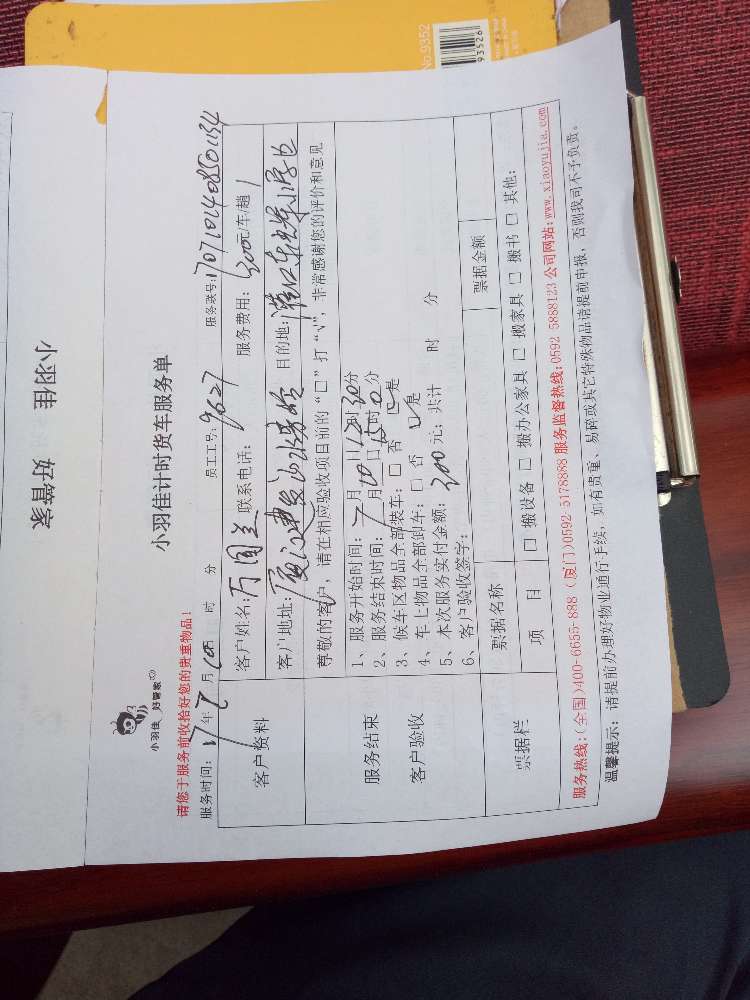 小羽佳 好管家
小羽佳 好管家
小羽佳计时货车服务单
请您于服务前收拾好您的贵重物品!
服务时间: 17年7月10日 时 分 员工工号: 9627 服务联号:
客户资料
客户姓名: 方国兰 联系电话: 服务费用: 200元/车/趟
客户地址: 目的地:
尊敬的客户,请在相应验收项目前的“□”打“√”,非常感谢您的评价和意见
服务结束
客户验收
1、服务开始时间: 7月10日12时30分
2、服务结束时间: 7月10日15时0分
3、候车区物品全部装车: □ 否 □是
4、车上物品全部卸车: □ 否 □是
5、本次服务实付金额: 200元; 共计 时 分
6、客户验收签字:
票据栏
票据名称 票据金额
项 目 □ 搬设备 □ 搬办公家具 □ 搬家具 □ 搬书 □ 其他:
服务热线:(全国)400-6695-888 (厦门)0592-5178888 服务监督热线:0592 5888123 公司网站:www.xiaoyujia.com
温馨提示: 请提前办理好物业通行手续, 如有贵重、易碎或其它特殊物品请提前申报, 否则我司不予负责。
No.9352
935261